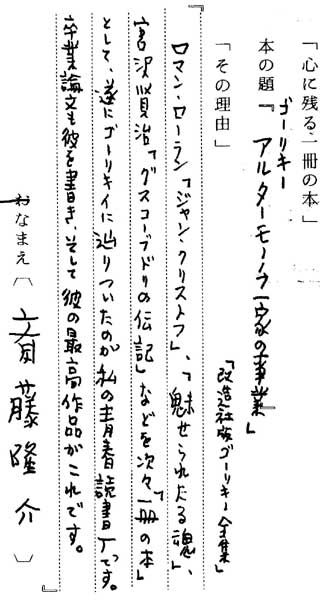 「心に残る一冊の本」
本の題『ゴーリキー アルターモノフ一家の事業』
「改造社版ゴーリキー全集」
「その理由」
『ロマン・ローラン「ジャン・クリストフ」、「魅せられたる魂」、
宮沢賢治「グスコーブドリの伝記」などを次々「一冊の本」
として、遂にゴーリキイに辿りついたのが私の青春読書ﾘﾚｷです。
卒業論文も彼を書き、そして彼の最高作品がこれです。』
おなまえ〔斎藤隆介〕